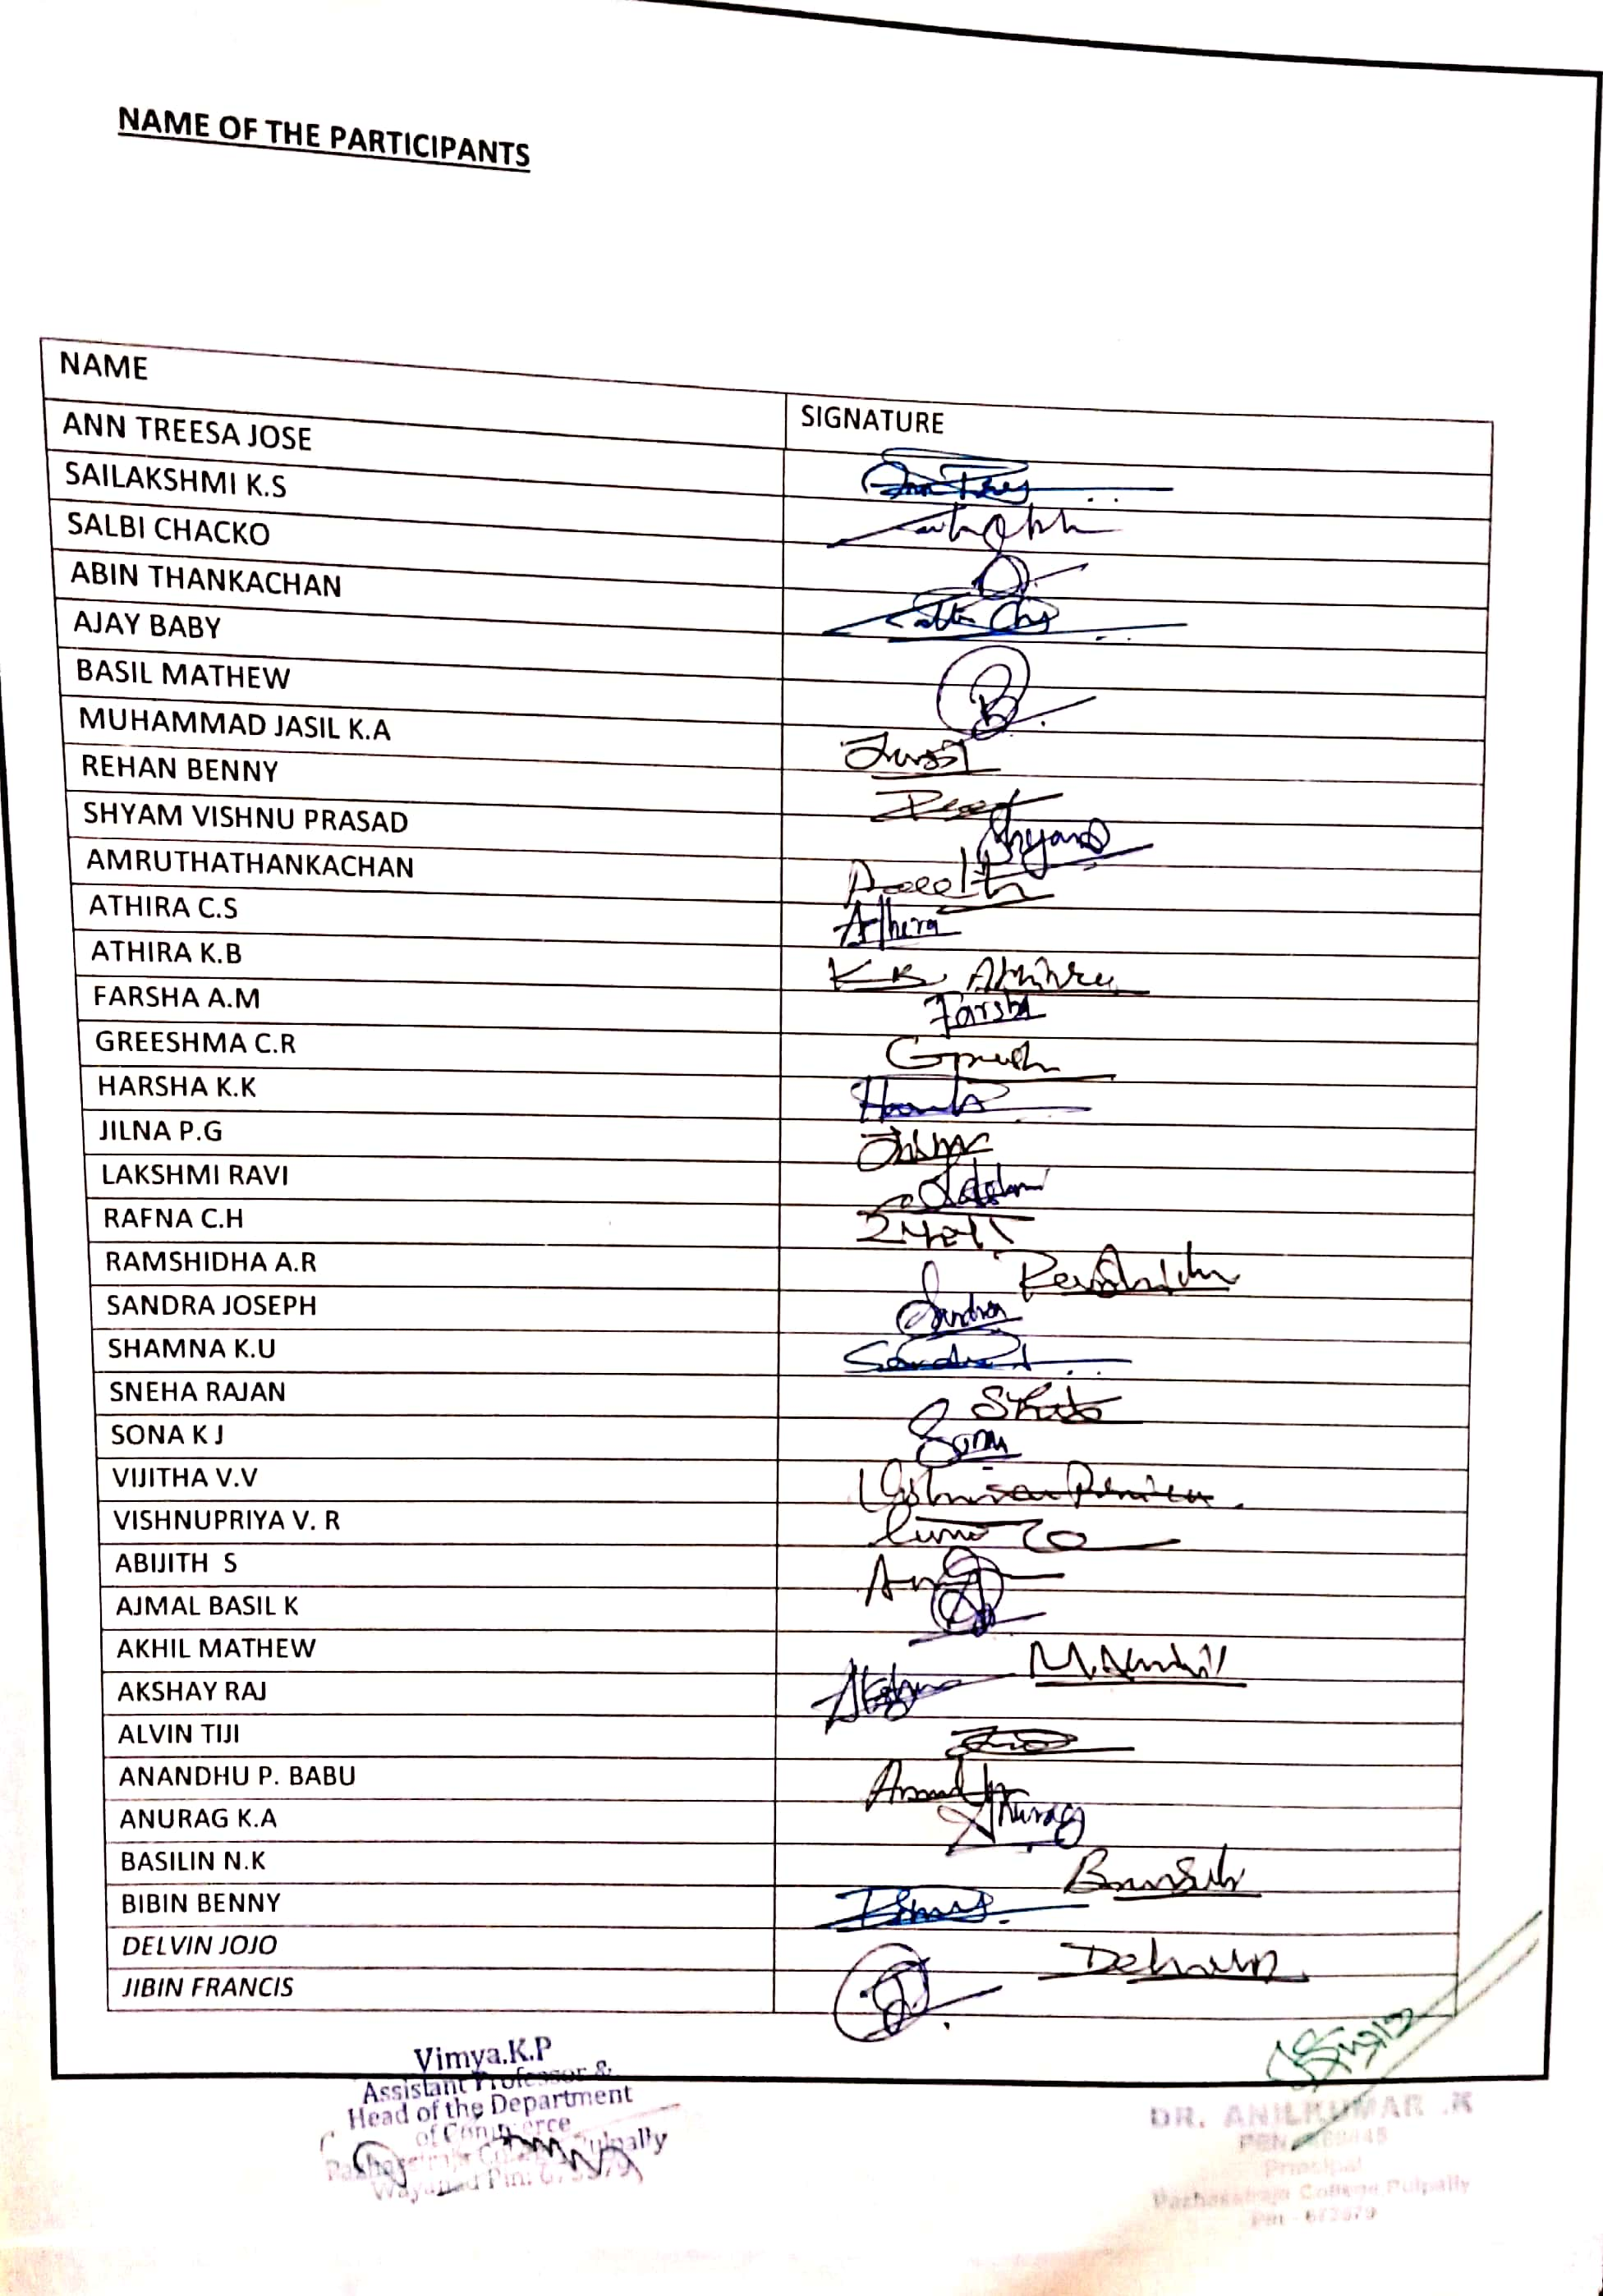 NAME OF THE PARTICIPANTS
NAME
SIGNATURE
ANN TREESA JOSE
SAILAKSHMI K.S
SALBI CHACKO
ABIN THANKACHAN
AJAY BABY
BASIL MATHEW
MUHAMMAD JASIL K.A
REHAN BENNY
SHYAM VISHNU PRASAD
Shyam
AMRUTHATHANKACHAN
ATHIRA C.S
Athira
ATHIRA K.B
K.B. Athira
FARSHA A.M
Farsha
GREESHMA C.R
HARSHA K.K
JILNA P.G
LAKSHMI RAVI
RAFNA C.H
RAMSHIDHA A.R
SANDRA JOSEPH
Sandra
SHAMNA K.U
SNEHA RAJAN
SONA K J
Sona
VIJITHA V.V
VISHNUPRIYA V. R
ABIJITH S
AJMAL BASIL K
AKHIL MATHEW
AKSHAY RAJ
ALVIN TIJI
ANANDHU P. BABU
ANURAG K.A
Anurag
BASILIN N.K
BIBIN BENNY
DELVIN JOJO
JIBIN FRANCIS
Vimya.K.P
Assistant Professor &
Head of the Department
of Commerce
Pazhassiraja College Pulpally
Wayanad Pin:
DR. ANILKUMAR .K
PEN
Principal
Pazhassiraja College Pulpally
Pin - 673579